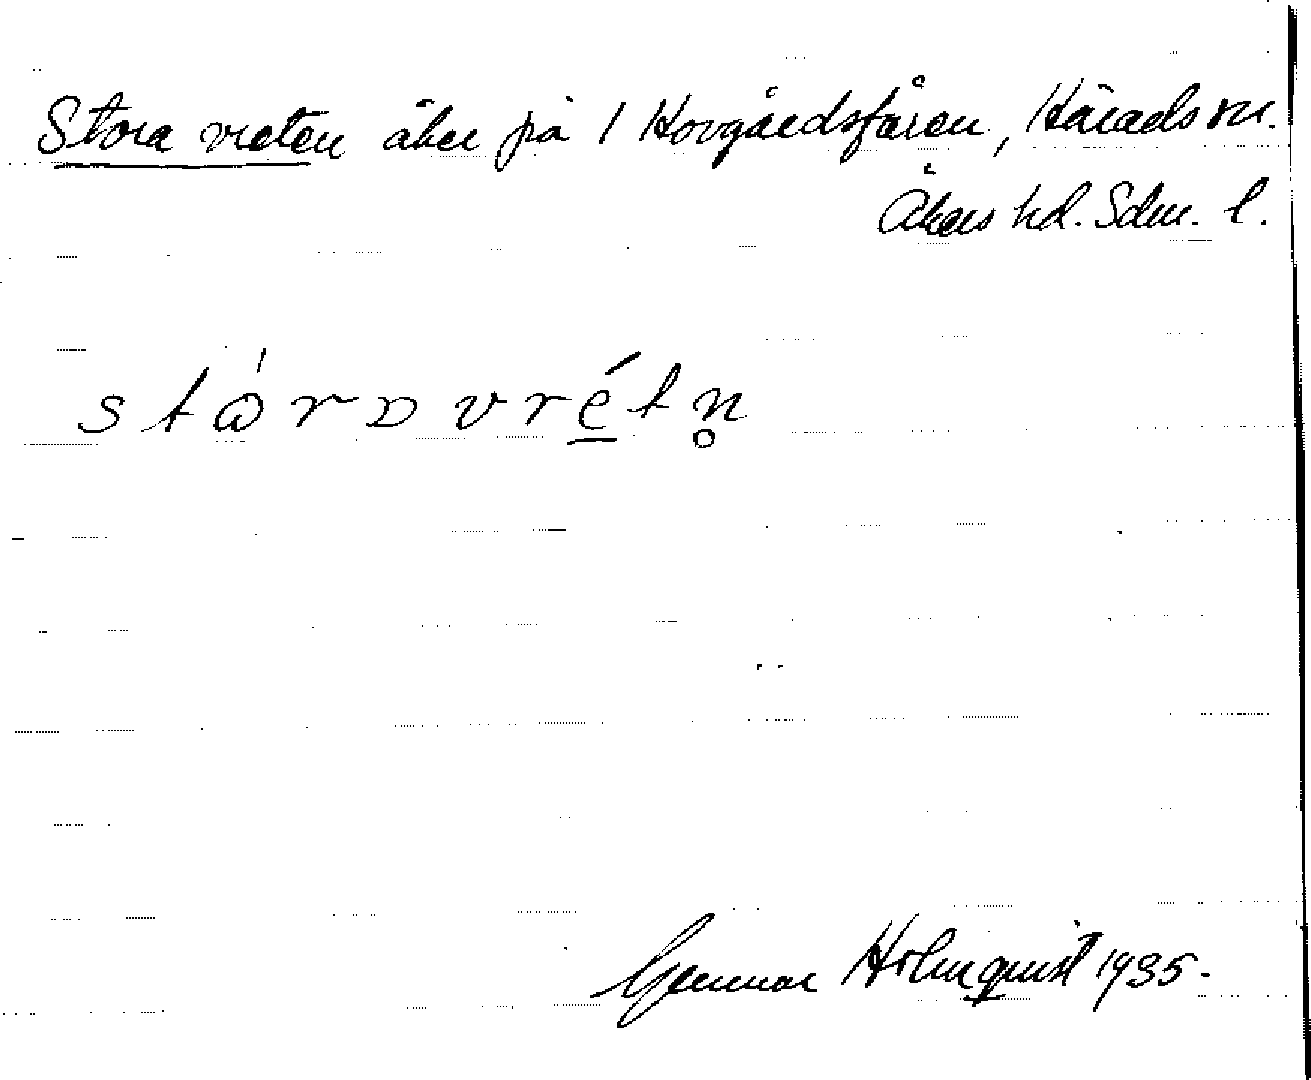 Stora vreten åker på 1 Hovgårdsfåren, Härads sn.
Åkers hd. Sdm. l.
stɷ́rɒ vré̲tn̥
Gunnar Holmquist 1935.